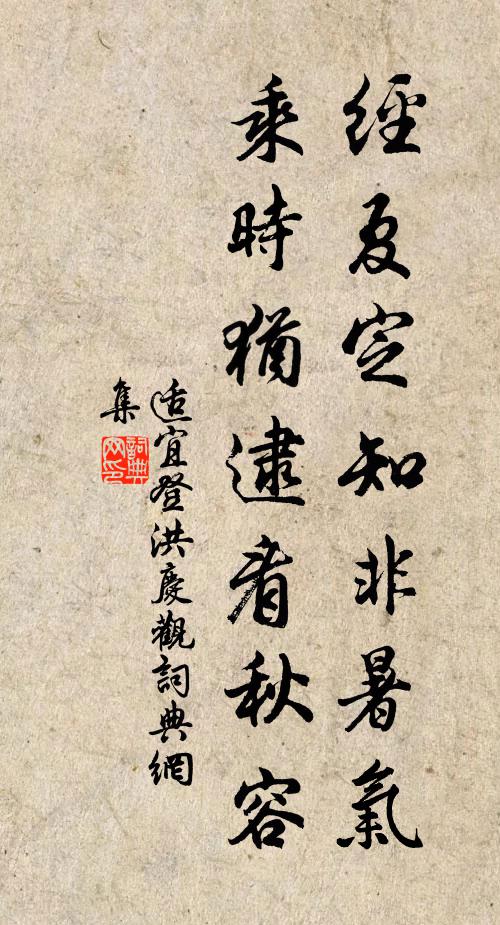 經夏定知非暑氣
乘時猶逮看秋容
适宜登洪慶觀詞典網
集
詞典
网印